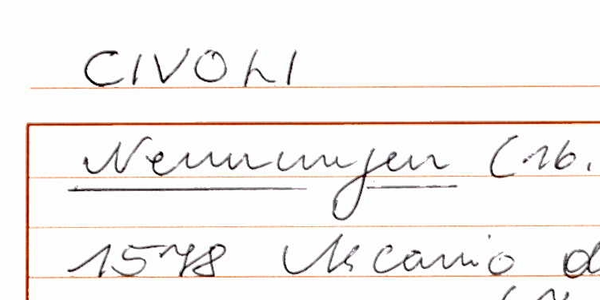 CIVOLI
Nennungen (16.
1578 Ascanio d